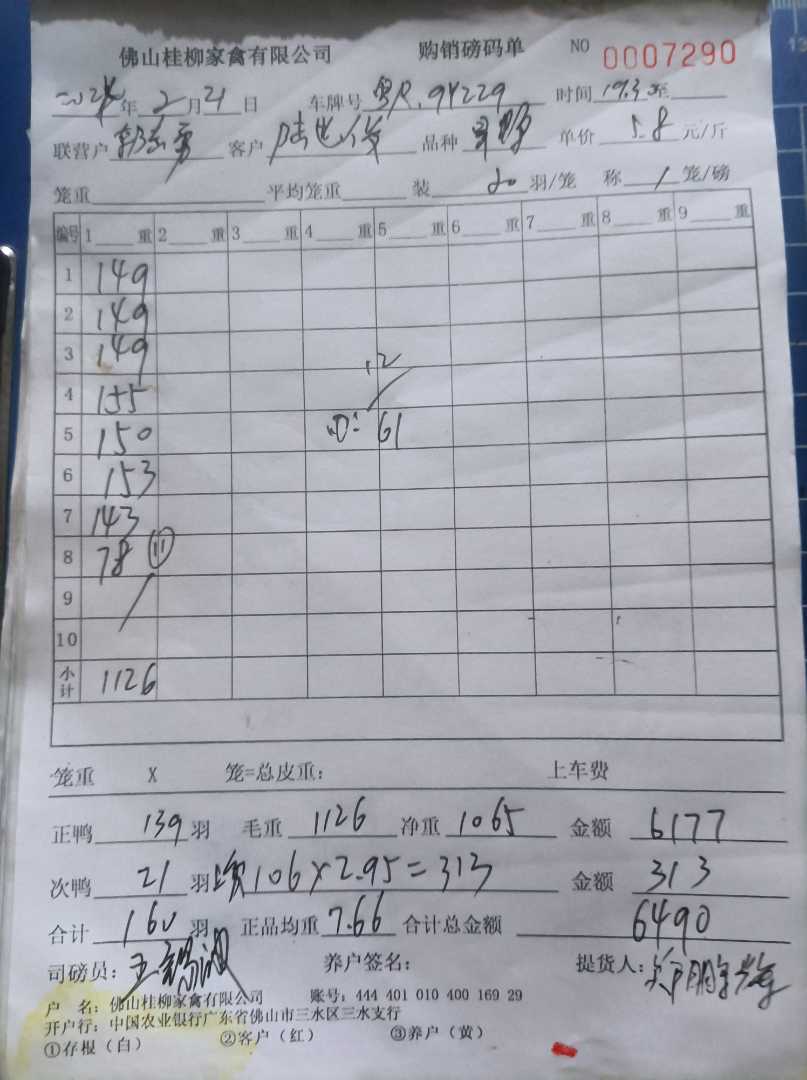 佛山桂柳家禽有限公司 购销磅码单 NO 0007290
年 2 月 21 日 车牌号 94229 时间 19.30 至
联营户 客户 品种 单价 5.8 元/斤
笼重 平均笼重 装 20 羽/笼 称 1 笼/磅
编号 1 重 2 重 3 重 4 重 5 重 6 重 7 重 8 重 9 重
1 149
2 149
3 149
12
4 155
5 150 61
6 153
7 143
8 78 11
9
10
小计 1126
笼重 X 笼=总皮重： 上车费
正鸭 139 羽 毛重 1126 净重 1065 金额 6177
次鸭 21 羽 106×2.95=313 金额 313
合计 160 羽 正品均重 7.66 合计总金额 6490
司磅员： 养户签名： 提货人：
户 名：佛山桂柳家禽有限公司 账号：444 401 010 400 169 29
开户行：中国农业银行广东省佛山市三水区三水支行
①存根（白） ②客户（红） ③养户（黄）